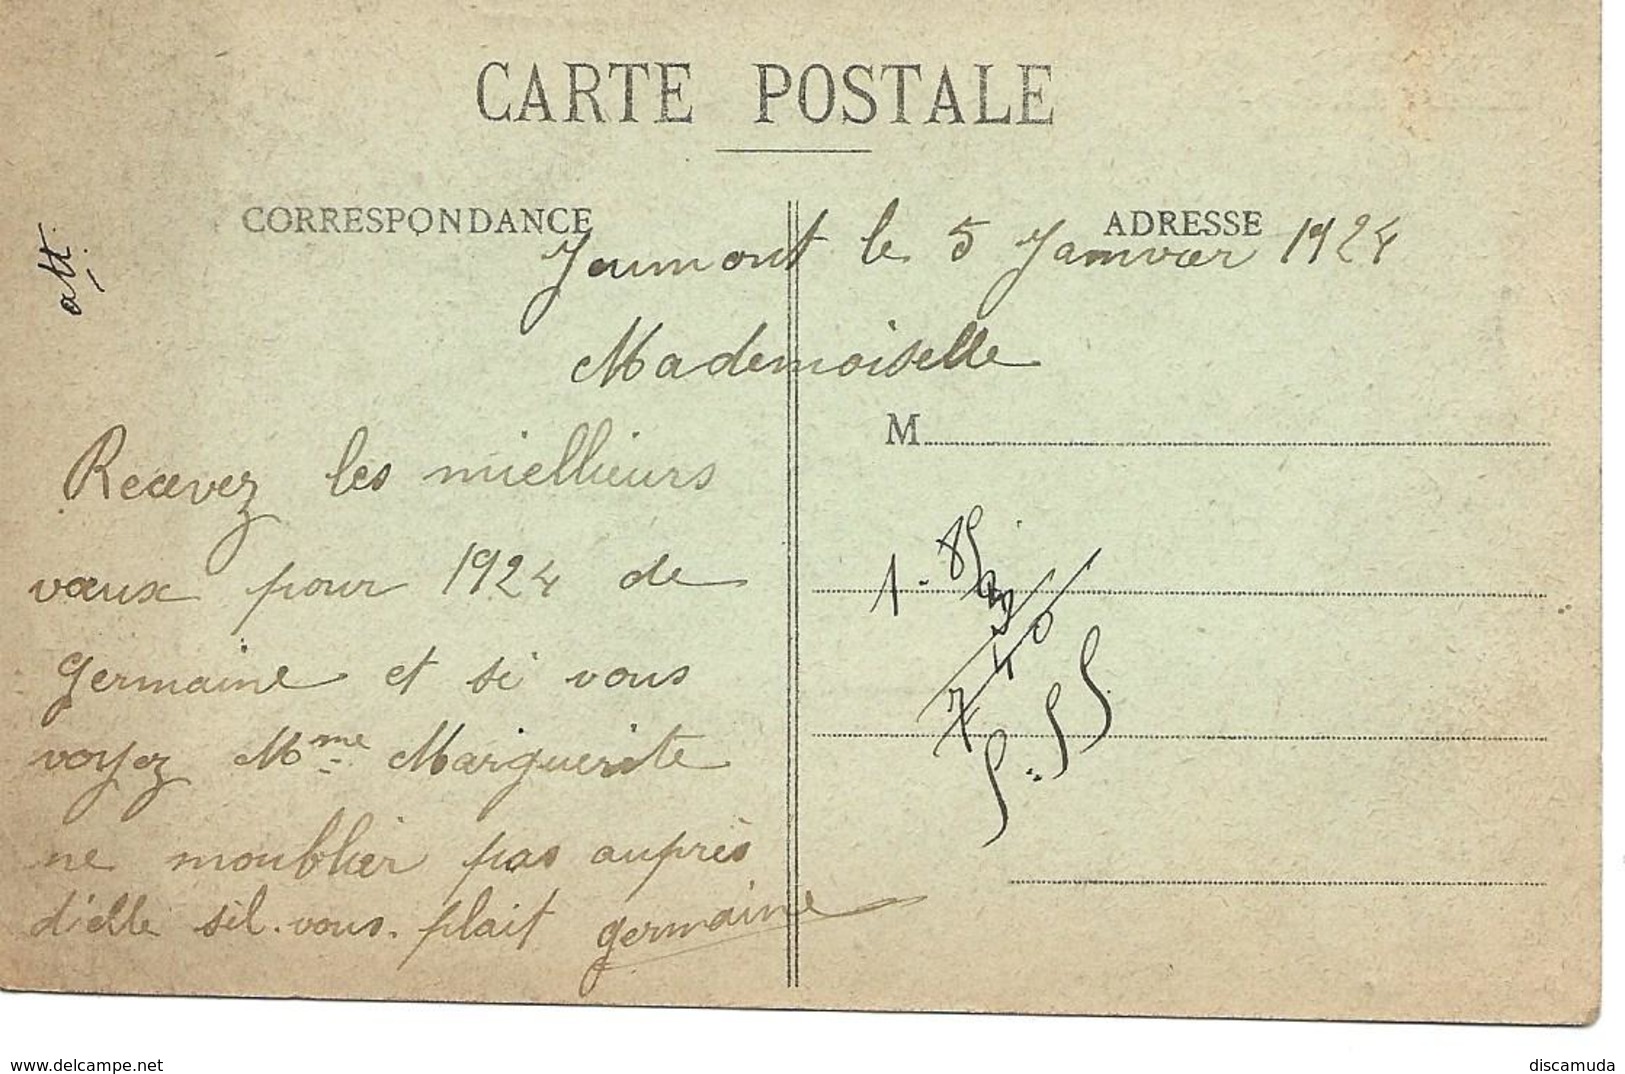 CARTE POSTALE
CORRESPONDANCE
ADRESSE
Jeumont le 5 Janvier 1924
Mademoiselle
M
Recevez les miellieurs
vœux pour 1924 de
Germaine et si vous
voyez Mme Marguerite
ne moublier pas auprès
d'elle sil. vous. plait germaine
att.
delcampe.net
discamuda